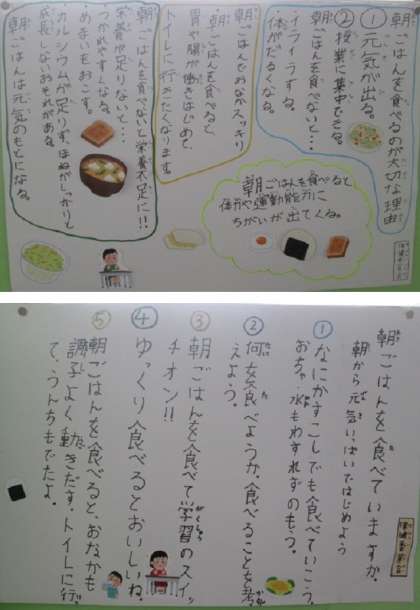 朝ごはんを食べるのが大切な理由
①元気が出る。
②授業に集中できる。
朝ごはんを食べないと…
イライラする。
体がだるくなる。
朝ごはんでおなかスッキリ
朝ごはんを食べると
胃や腸が働きはじめて、
トイレに行きたくなります。
朝ごはんを食べないと栄養不足に!!
栄養が足りないと…
つかれやすくなる。
めまいをおこす。
カルシウムが足りず、ほねがしっかりと
成長しないおそれがある。
朝ごはんは元気のもとになる。
朝ごはんを食べると
体力や運動能力に
ちがいが出てくる。
保健委員会
朝ごはんを食べていますか。
朝から元気いっぱいではじめよう
①なにかすこしでも食べていこう。
おちゃ・水もわすれずのもう。
②何を食べようか。食べることを考
えよう。
③朝ごはんを食べて学習のスイッ
チオン!!
④ゆっくり食べるとおいしいね。
⑤朝ごはんを食べると、おなかも
調子よく動きだす。トイレに行っ
て、うんちもでたよ。
保健委員会